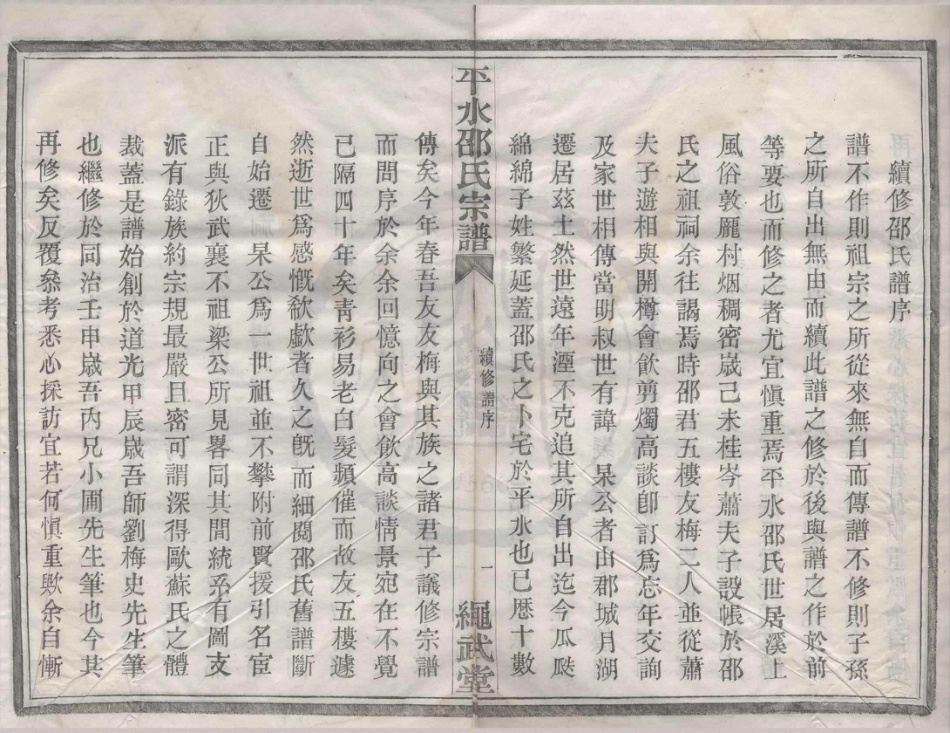 續修邵氏譜序
譜不作則祖宗之所從來無自而傳譜不修則子孫
之所自出無由而續此譜之修於後與譜之作於前
等要也而修之者尤宜愼重焉平水邵氏世居溪上
風俗敦龐村烟稠密歲己未桂岑蕭夫子設帳於邵
氏之祖祠余往謁焉時邵君五樓友梅二人並從蕭
夫子遊相與開樽會飲剪燭高談卽訂爲忘年交詢
及家世相傳當明叔世有諱 杲公者由郡城月湖
遷居茲土然世遠年湮不克追其所自出迄今瓜瓞
綿綿子姓繁延蓋邵氏之卜宅於平水也已歷十數
平水邵氏宗譜
續修譜序
一
繩武堂
傳矣今年春吾友友梅與其族之諸君子議修宗譜
而問序於余余回憶向之會飲高談情景宛在不覺
已隔四十年矣靑衫易老白髮頻催而故友五樓遽
然逝世爲感慨欷歔者久之旣而細閱邵氏舊譜斷
自始遷 杲公爲一世祖並不攀附前賢援引名宦
正與狄武襄不祖梁公所見畧同其間統系有圖支
派有錄族約宗規最嚴且密可謂深得歐蘇氏之體
裁蓋是譜始創於道光甲辰歲吾師劉梅史先生筆
也繼修於同治壬申歲吾內兄小圃先生筆也今其
再修矣反覆叅考悉心採訪宜若何愼重歟余自慚